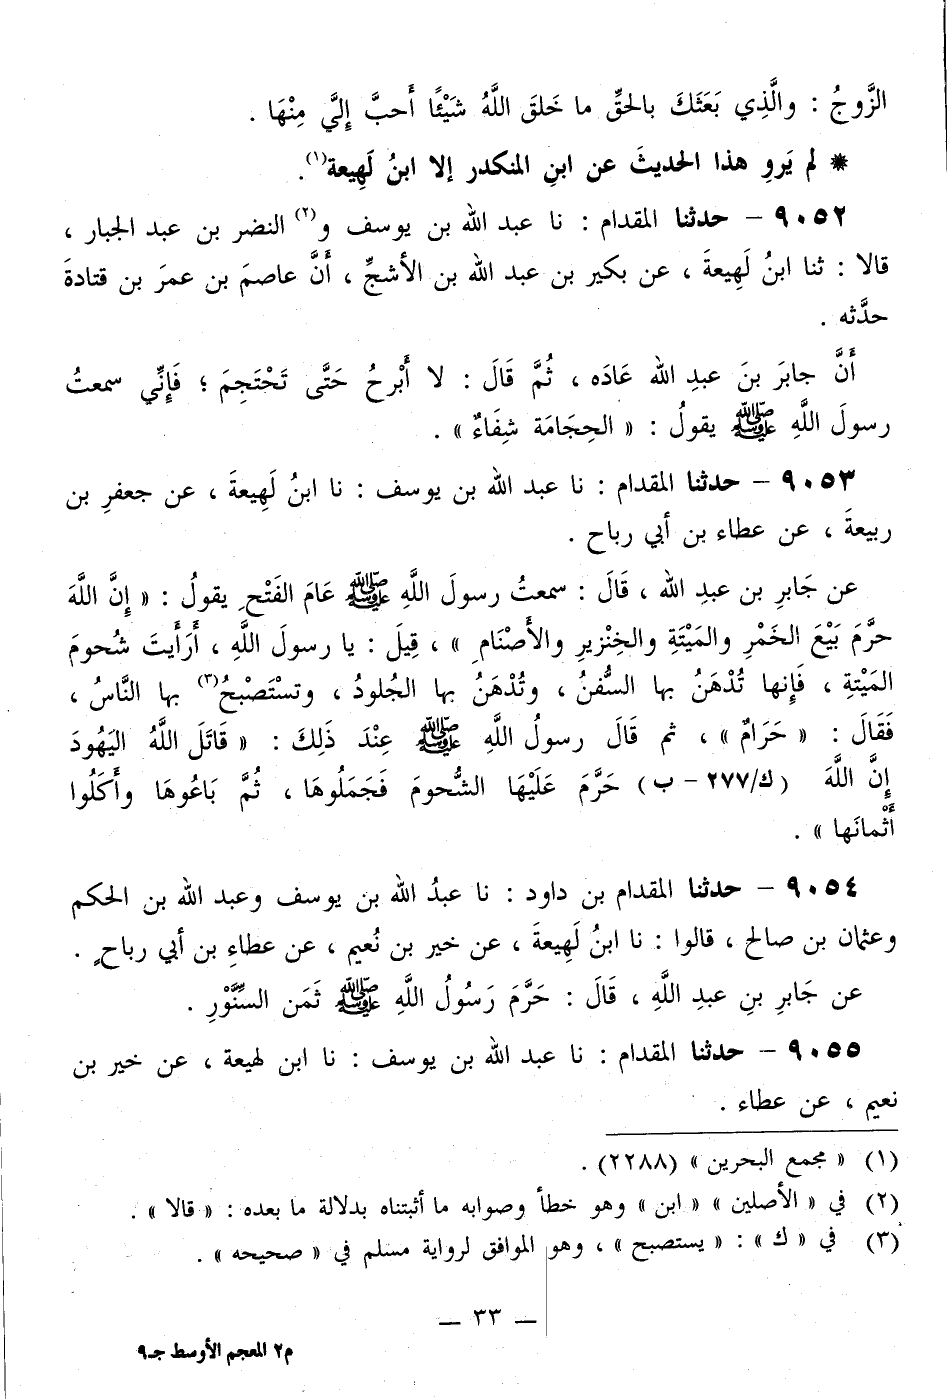 الزَّوجُ : والَّذِي بَعَثَكَ بالحَقِّ ما خَلقَ اللَّهُ شَيْئًا أَحبَّ إِليَّ مِنْهَا .
* لم يَروِ هذا الحديثَ عن ابنِ المنكدر إلا ابنُ لَهِيعة(١).
٩٠٥٢ – حدثنا المقدام : نا عبد الله بن يوسف و(٢) النضر بن عبد الجبار ،
قالا : ثنا ابنُ لَهِيعةَ ، عن بكير بن عبد الله بن الأشجِّ ، أَنَّ عاصمَ بن عمرَ بن قتادةَ
حدَّثه .
أَنَّ جابرَ بنَ عبدِ الله عَادَه ، ثُمَّ قَالَ : لا أَبْرحُ حَتَّى تَحْتَجِمَ ؛ فَإِنِّي سمعتُ
رسولَ اللَّهِ ﷺ يقولُ : « الحِجَامَة شِفَاءٌ » .
٩٠٥٣ – حدثنا المقدام : نا عبد الله بن يوسف : نا ابنُ لَهِيعةَ ، عن جعفرِ بن
ربيعةَ ، عن عطاء بن أبي رباح .
عن جَابرِ بن عبدِ الله ، قَالَ : سمعتُ رسولَ اللَّهِ ﷺ عَامَ الفَتْحِ يقولُ : « إِنَّ اللَّهَ
حرَّمَ بَيْعَ الخَمْرِ والمَيْتَةِ والخِنْزيرِ والأَصْنَامِ » ، قِيلَ : يا رسولَ اللَّهِ ، أَرَأَيتَ شُحومَ
المَيْتةِ ، فَإِنها تُدْهَنُ بها السُّفنُ ، وتُدْهَنُ بها الجُلودُ ، وتسْتَصْبحُ(٣) بها النَّاسُ ،
فَقَالَ : « حَرَامٌ » ، ثم قَالَ رسولُ اللَّهِ ﷺ عِنْدَ ذَلِكَ : « قَاتَلَ اللَّهُ اليَهُودَ
إِنَّ اللَّهَ (ك/٢٧٧ – ب) حَرَّمَ عَلَيْهَا الشُّحومَ فَجَمَلُوهَا ، ثُمَّ بَاعُوهَا وأَكَلُوا
أَثْمانَها » .
٩٠٥٤ – حدثنا المقدام بن داود : نا عبدُ الله بن يوسف وعبد الله بن الحكم
وعثمان بن صالح ، قالوا : نا ابنُ لَهِيعةَ ، عن خير بن نُعيم ، عن عطاءِ بن أبي رباحٍ .
عن جَابرِ بنِ عبدِ اللَّهِ ، قَالَ : حَرَّمَ رَسُولُ اللَّهِ ﷺ ثَمَن السِّنَّوْرِ .
٩٠٥٥ – حدثنا المقدام : نا عبد الله بن يوسف : نا ابن لهيعة ، عن خير بن
نعيم ، عن عطاء .
(١) « مجمع البحرين » (٢٢٨٨) .
(٢) في « الأصلين » « ابن » وهو خطأ وصوابه ما أثبتناه بدلالة ما بعده : « قالا » .
(٣) في « ك » : « يستصبح » ، وهو الموافق لرواية مسلم في « صحيحه » .
— ٣٣ —
م٢ المعجم الأوسط جـ٩